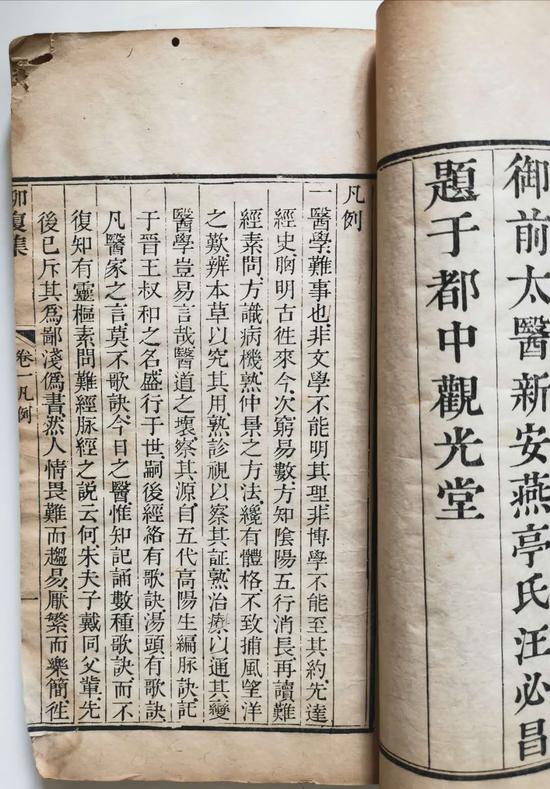 御前太醫新安燕亭氏汪必昌
題于都中觀光堂
凡例
一醫學難事也非文學不能明其理非博學不能至其約先達
經史胸明古徃來今次窮易數方知陰陽五行消長再讀難
經素問方識病機熟仲景之方法纔有體格不致捕風望洋
之歎辨本草以究其用熟診視以察其証熟治療以通其變
醫學豈易言哉醫道之壞察其源自五代高陽生編脉訣記
于晉王叔和之名盛行于世嗣後經絡有歌訣湯頭有歌訣
凡醫家之言莫不歌訣今日之醫惟知記誦數種歌訣而不
復知有靈樞素問難經脉經之說云何宋夫子戴同父輩先
後已斥其爲鄙淺僞書然人情畏難而趨易厭繁而樂簡徃
卷一凡例
一